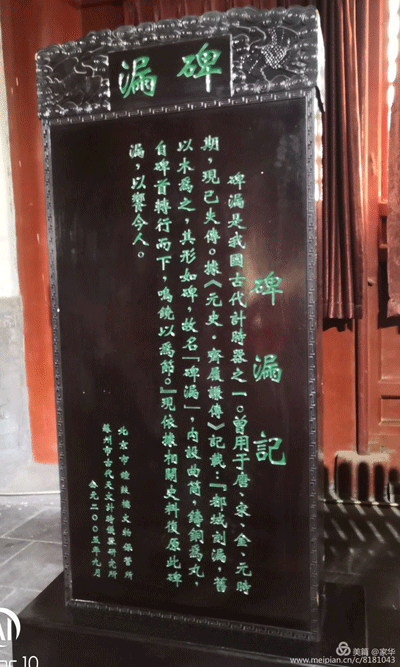 碑漏
碑漏記
碑漏是我國古代計時器之一。曾用于唐、宋、金、元時
期，現已失傳。據《元史·齊履謙傳》記載：『都城刻漏，舊
以木爲之，其形如碑，故名「碑漏」，内設曲筒，鑄銅爲丸，
自碑首轉行而下，鳴鐃以爲節。』現依據相關史料復原此碑
漏，以饗今人。
北京市鐘鼓樓文物保管所
蘇州市古代天文計時儀器研究所
公元二00五年九月
美篇 @家华
www.meipian.cn/c/8181043
10